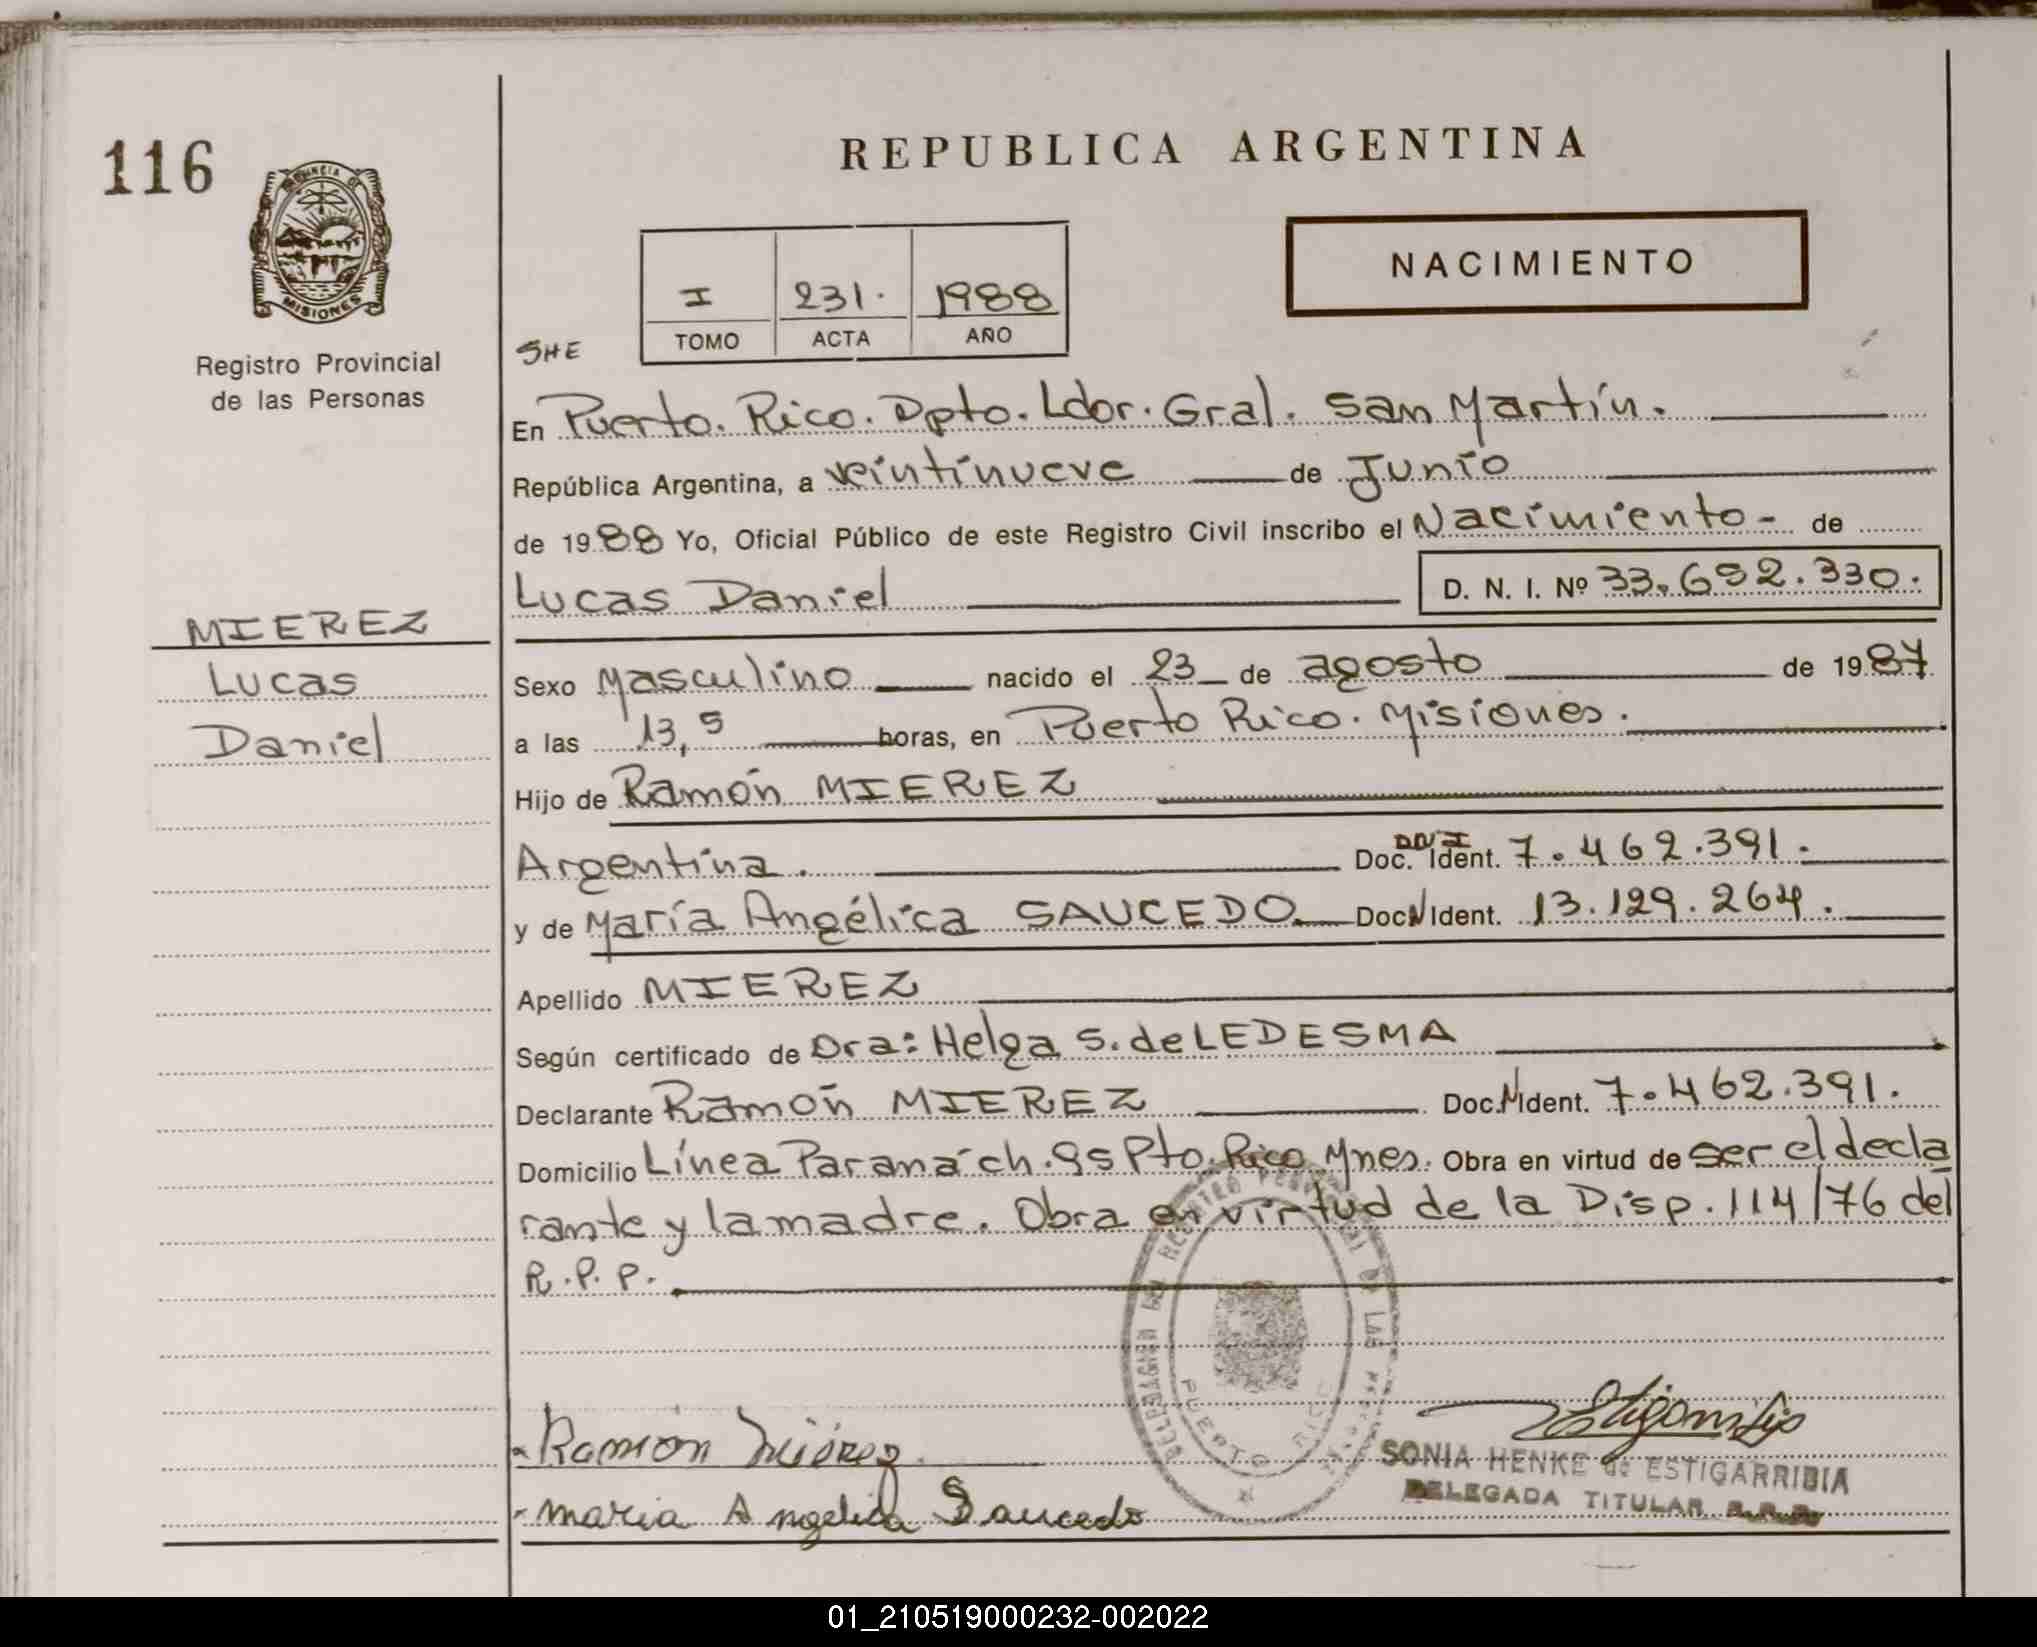 116
REPUBLICA ARGENTINA
PROVINCIA DE
MISIONES
Registro Provincial
de las Personas
NACIMIENTO
I 231. 1988
TOMO ACTA AÑO
SHE
En Puerto. Rico. Dpto. Ldor. Gral. San Martín.
República Argentina, a veintinueve de Junio
de 1988 Yo, Oficial Público de este Registro Civil inscribo el Nacimiento - de
Lucas Daniel D. N. I. Nº 33.692.330.
MIEREZ
Lucas
Daniel
Sexo Masculino nacido el 23 de agosto de 1987
a las 13,5 horas, en Puerto Rico. Misiones.
Hijo de Ramón MIEREZ
Argentina. Doc. DNI Ident. 7.462.391.
y de María Angélica SAUCEDO Doc. N Ident. 13.129.264.
Apellido MIEREZ
Según certificado de Dra: Helga S. de LEDESMA
Declarante Ramón MIEREZ Doc. N Ident. 7.462.391.
Domicilio Línea Paraná ch. 95 Pto. Rico Mnes. Obra en virtud de ser el decla
rante y la madre. Obra en virtud de la Disp. 114/76 del
R.P.P.
DELEGACION DEL REGISTRO PROVINCIAL DE LAS PERSONAS
PUERTO RICO
Ramón Miérez
Maria Angelica Saucedo
SONIA HENKE de ESTIGARRIBIA
DELEGADA TITULAR R.P.P.
01_210519000232-002022